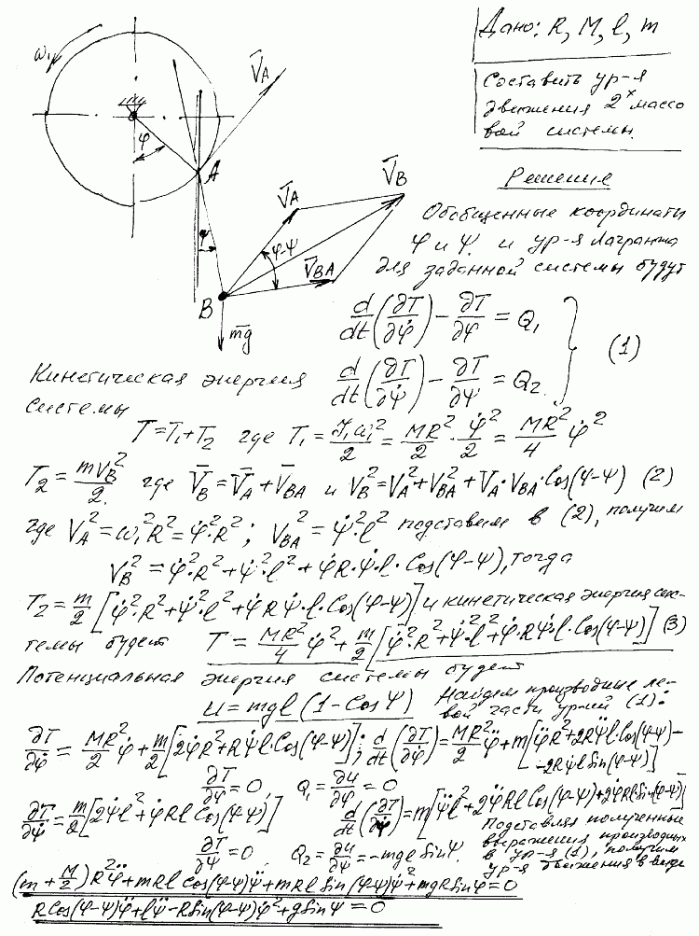 Дано: R, M, l, m
Составить ур-я
движения 2х массо
вой системы.
ω₁
V̄A
φ
A
ψ
V̄A
V̄B
φ-ψ
V̄BA
B
m̄g
Решение
Обобщенные координаты
φ и ψ. и ур-я Лагранжа
для заданной системы будут
d/dt(∂T/∂φ̇) - ∂T/∂φ = Q₁
d/dt(∂T/∂ψ̇) - ∂T/∂ψ = Q₂
(1)
Кинетическая энергия
системы
T = T₁ + T₂ где T₁ = J₁ω₁²/2 = MR²/2 · φ̇²/2 = MR²/4 φ̇²
T₂ = mVB²/2 где V̄B = V̄A + V̄BA и VB² = VA² + VBA² + VA·VBA·Cos(φ-ψ) (2)
где VA² = ω₁²R² = φ̇²·R²; VBA² = ψ̇²·l² подставим в (2), получим
VB² = φ̇²·R² + ψ̇²·l² + φ̇R·ψ̇·l·Cos(φ-ψ), тогда
T₂ = m/2 [φ̇²·R² + ψ̇²·l² + φ̇Rψ̇·l·Cos(φ-ψ)] и кинетическая энергия сис-
темы будет T = MR²/4 φ̇² + m/2 [φ̇²·R² + ψ̇²·l² + φ̇·Rψ̇·l·Cos(φ-ψ)] (3)
Потенциальная энергия системы будет
U = mgl (1 - Cos ψ) Найдем производные ле-
вой части ур-ий (1):
∂T/∂φ̇ = MR²/2 φ̇ + m/2 [2φ̇R² + Rψ̇l·Cos(φ-ψ)]; d/dt(∂T/∂φ̇) = MR²/2 φ̈ + m[φ̈R² + 2Rψ̈l·Cos(φ-ψ) -
- 2Rψ̇l Sin(φ-ψ)]
∂T/∂φ = 0, Q₁ = ∂U/∂φ = 0
∂T/∂ψ̇ = m/2 [2ψ̇l² + φ̇Rl Cos(φ-ψ)] d/dt(∂T/∂ψ̇) = m[ψ̈l² + 2φ̈Rl Cos(φ-ψ) + 2φ̇Rl Sin(φ-ψ)]
∂T/∂ψ = 0, Q₂ = ∂U/∂ψ = -mgl Sin ψ.
Подставляя полученные
выражения производных
в ур-я (1), получим
ур-я движения в виде
(m + M/2)R²φ̈ + mRl Cos(φ-ψ)ψ̈ + mRl Sin(φ-ψ)ψ̇² + mgR Sin φ = 0
R Cos(φ-ψ)φ̈ + lψ̈ - R Sin(φ-ψ)φ̇² + g Sin ψ = 0